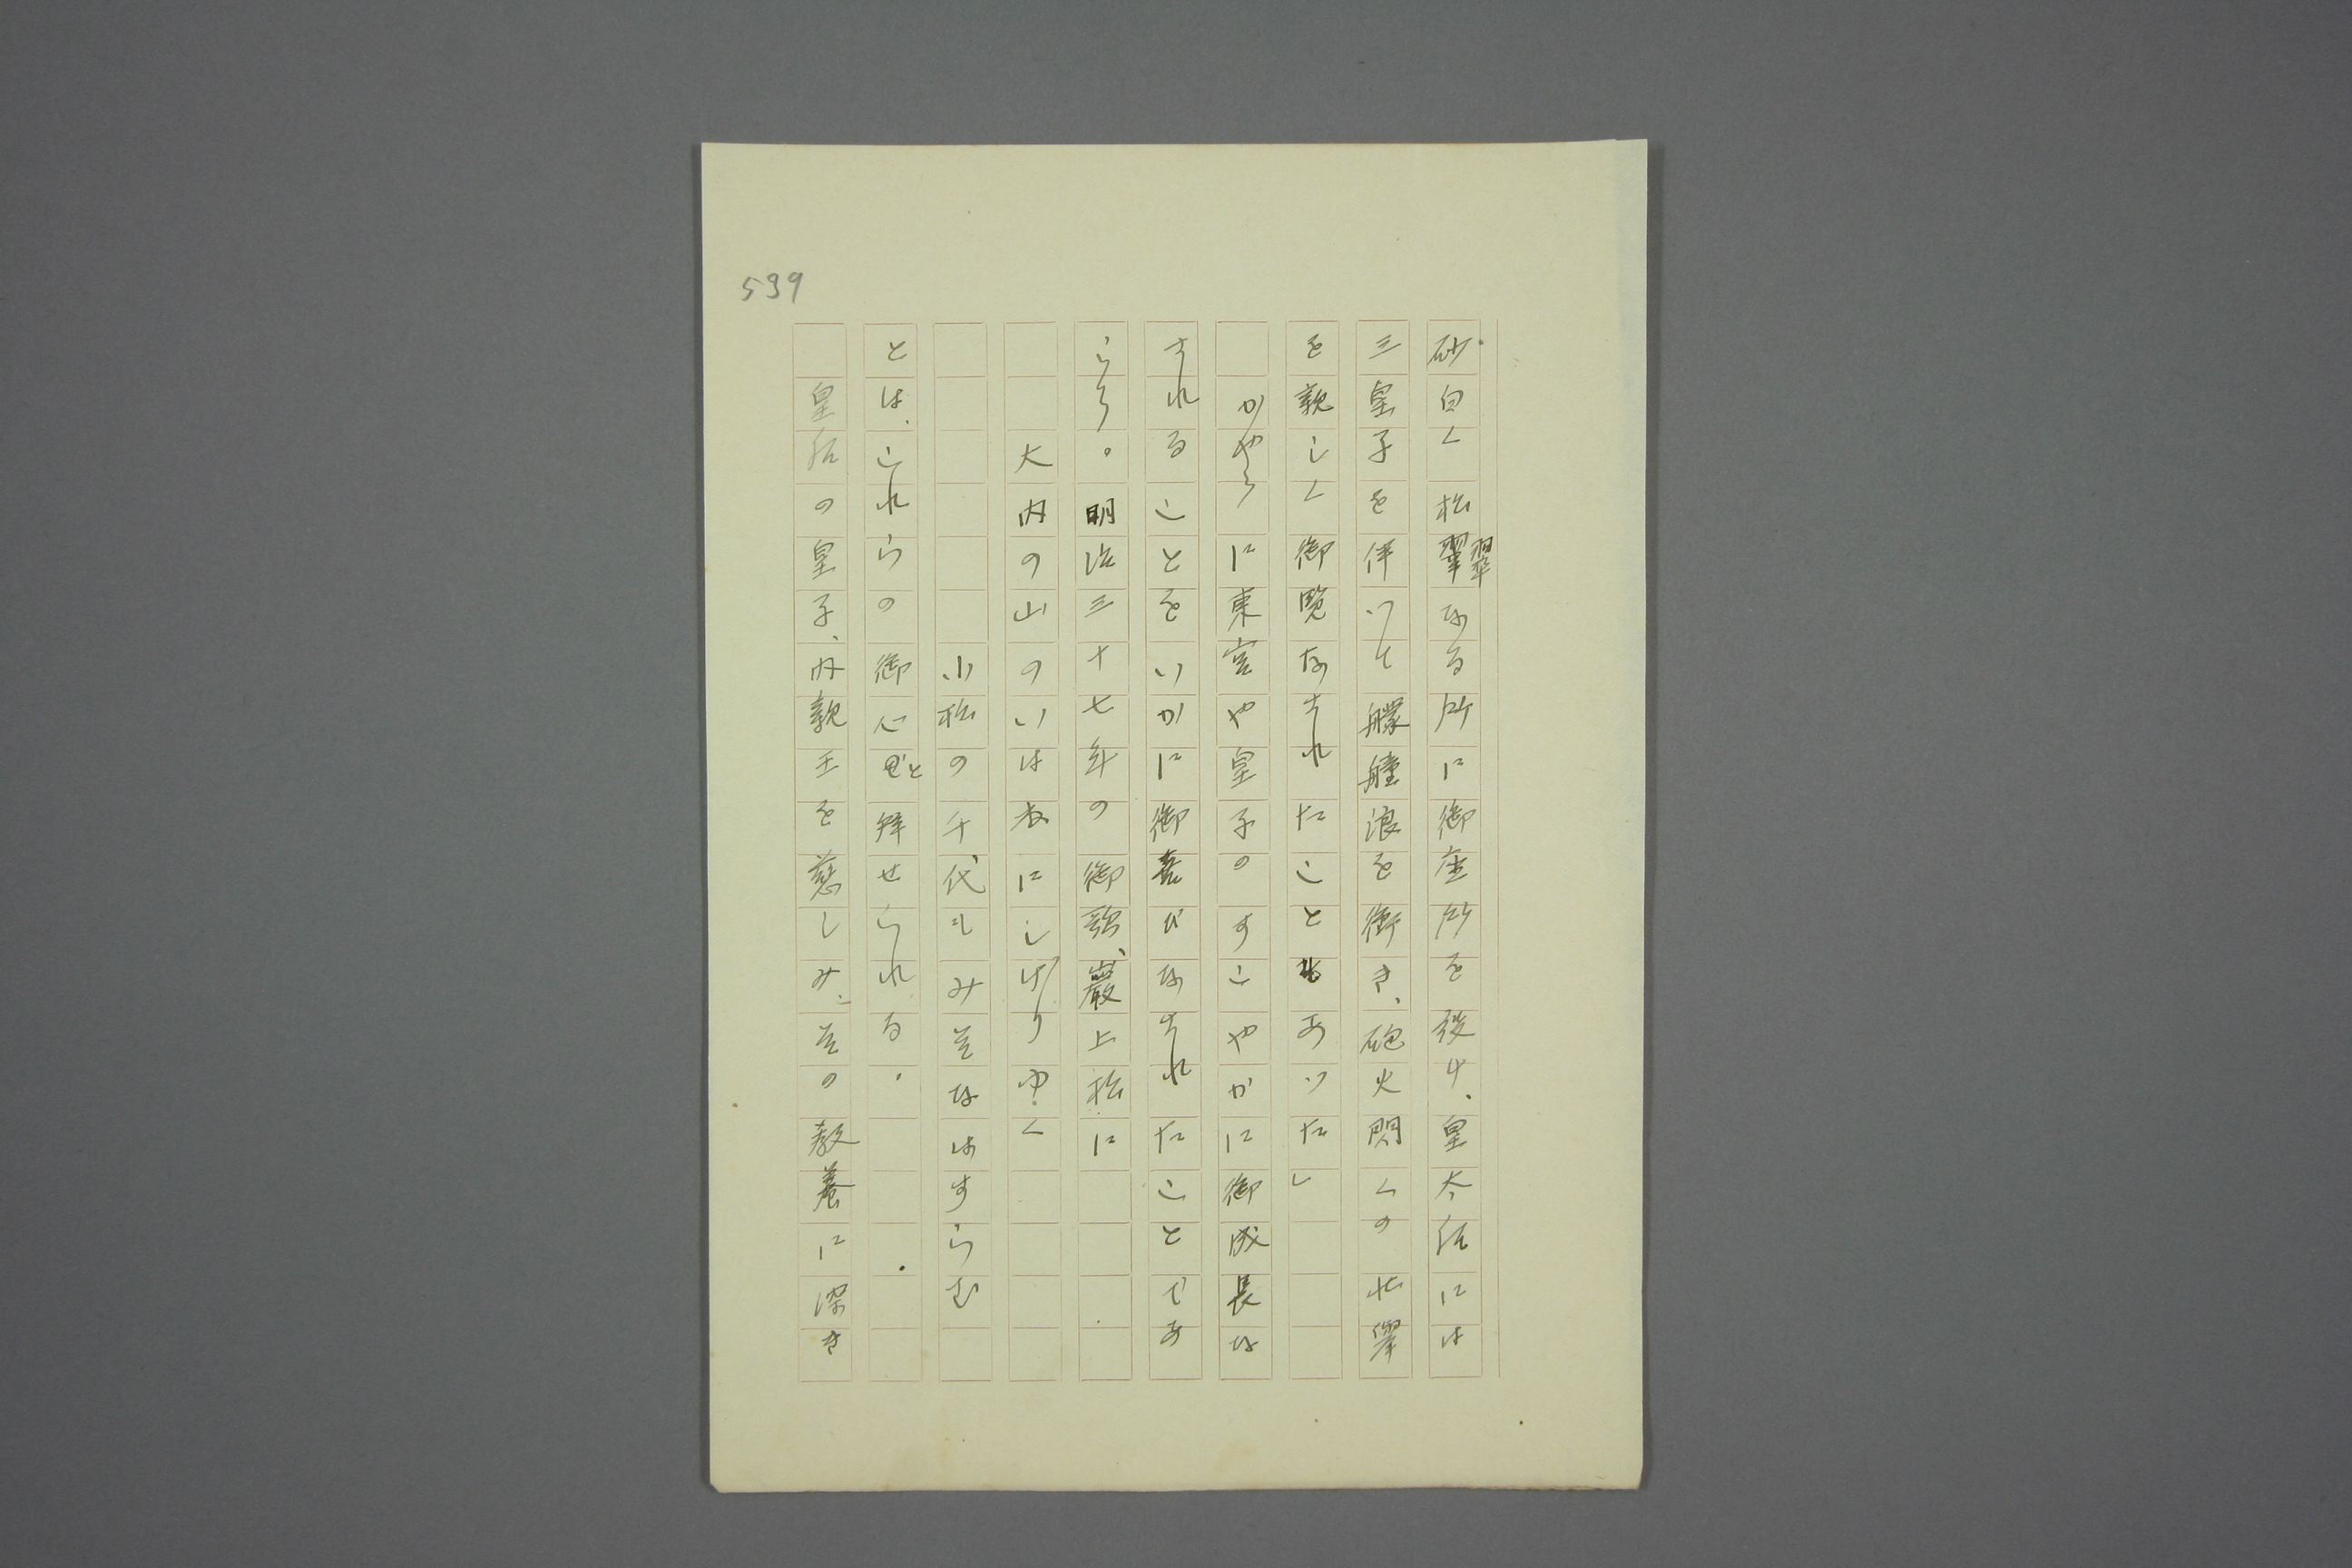 539
砂白く松翠なる所に御座所を設け、皇太后には
三皇子を伴いて艨艟浪を衝き、砲火閃くの壮挙
を親しく御覧なされたこともあった」
かやうに東宮や皇子のすこやかに御成長な
されることをいかに御喜びなされたことであ
らう。明治三十七年の御歌、巌上松に
大内の山のいはねにしげりゆく
小松の千代もみそなはすらむ
とは、これらの御心ぞと拝せられる。
皇后の皇子、内親王を慈しみ、その教養に深き